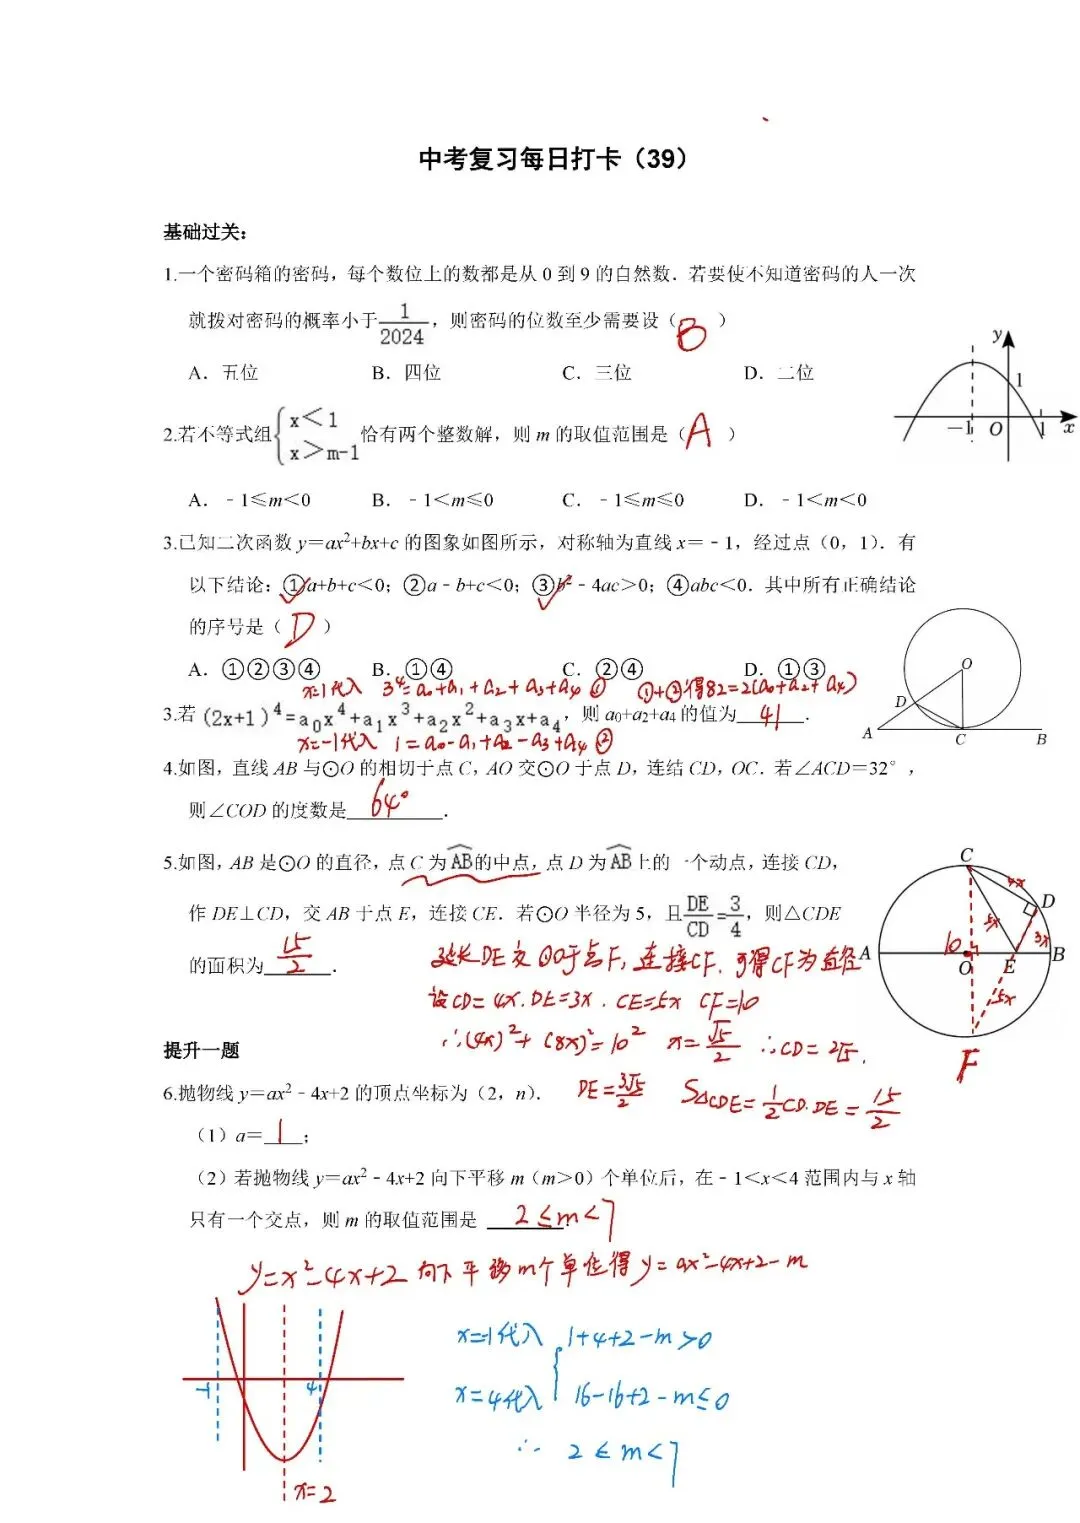 中考复习每日打卡（39）
基础过关：
1.一个密码箱的密码，每个数位上的数都是从 0 到 9 的自然数．若要使不知道密码的人一次
就拨对密码的概率小于1/2024，则密码的位数至少需要设（ B ）
A．五位 B．四位 C．三位 D．二位
y 1 -1 O 1 x
2.若不等式组{x<1 x>m-1 恰有两个整数解，则 m 的取值范围是（ A ）
A．﹣1≤m<0 B．﹣1<m≤0 C．﹣1≤m≤0 D．﹣1<m<0
3.已知二次函数 y＝ax²+bx+c 的图象如图所示，对称轴为直线 x＝﹣1，经过点（0，1）．有
以下结论：①a+b+c<0；②a﹣b+c<0；③b²﹣4ac>0；④abc<0．其中所有正确结论
的序号是（ D ）
A．①②③④ B．①④ C．②④ D．①③
x=1代入 3⁴=a₀+a₁+a₂+a₃+a₄ ① ①+②得82=2(a₀+a₂+a₄)
3.若 (2x+1)⁴=a₀x⁴+a₁x³+a₂x²+a₃x+a₄，则 a₀+a₂+a₄ 的值为 41 ．
x=-1代入 1=a₀-a₁+a₂-a₃+a₄ ②
O D A C B
4.如图，直线 AB 与⊙O 的相切于点 C，AO 交⊙O 于点 D，连结 CD，OC．若∠ACD＝32°，
则∠COD 的度数是 64° ．
5.如图，AB 是⊙O 的直径，点 C 为AB的中点，点 D 为AB上的一个动点，连接 CD，
作 DE⊥CD，交 AB 于点 E，连接 CE．若⊙O 半径为 5，且DE/CD=3/4，则△CDE
的面积为 15/2 ．
C 4x D 5x 3x 10 A O E B 5x F
延长DE交⊙O于点F，连接CF．可得CF为直径
设CD=4x．DE=3x．CE=5x CF=10
∴(4x)²+(8x)²=10² x=√5/2 ∴CD=2√5．
DE=3√5/2 S△CDE=1/2CD·DE=15/2
提升一题
6.抛物线 y＝ax²﹣4x+2 的顶点坐标为（2，n）．
（1）a＝ 1 ；
（2）若抛物线 y＝ax²﹣4x+2 向下平移 m（m>0）个单位后，在﹣1<x<4 范围内与 x 轴
只有一个交点，则 m 的取值范围是 2≤m<7 ．
y=x²-4x+2 向下平移m个单位得y=ax²-4x+2-m
-1 4 x=2
x=-1代入 { 1+4+2-m>0
x=4代入 16-16+2-m≤0
∴ 2≤m<7